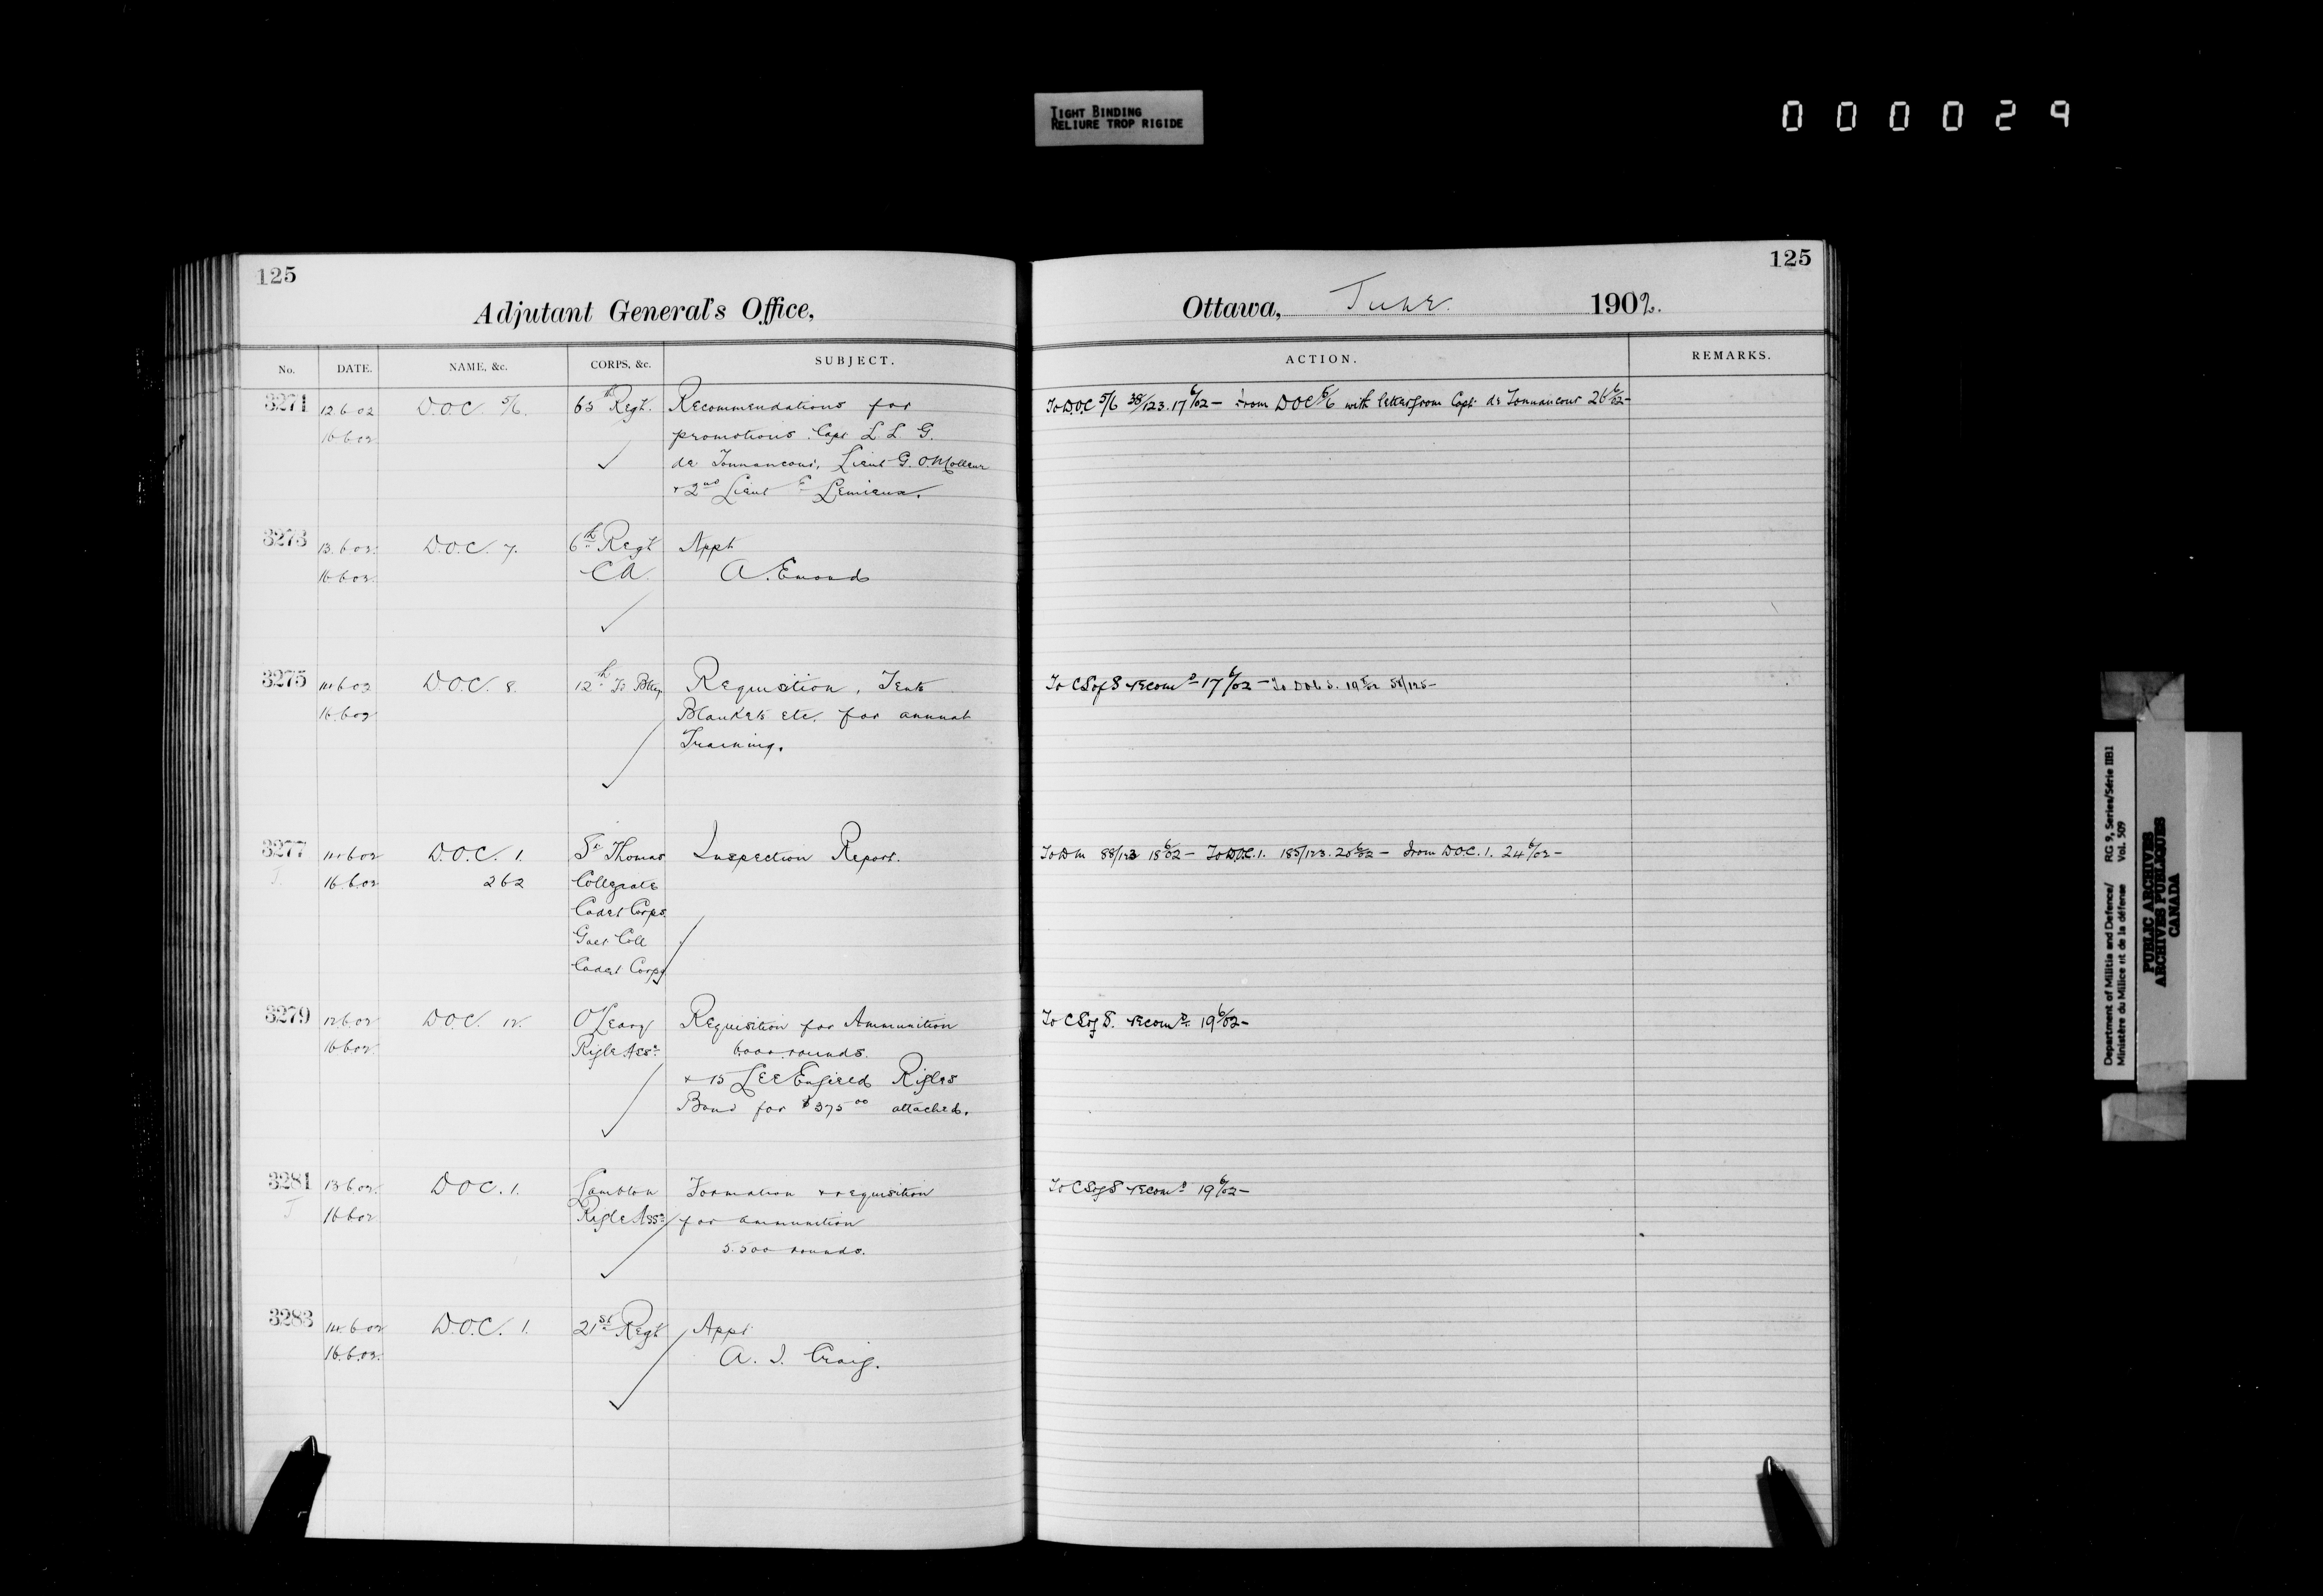 TIGHT BINDING
RELIURE TROP RIGIDE
000029
125
Adjutant General's Office,
No. DATE. NAME, &c. CORPS, &c. SUBJECT.
3271 12.6.02 D.O.C. 5/6. 65th Regt. Recommendations for
16.6.02 promotions. Capt L. L. G.
de Tonnancour, Lieut G. O.
& 2nd Lieut E Lemieux.
3273 13.6.02 D.O.C. 7. 6th Regt Appt
16.6.02 C A. A. Emond
3275 14.6.02 D.O.C. 8. 12th Fd Bty Requisition, Tents
16.6.02 Blankets etc. for annual
Training.
3277 14.6.02 D.O.C. 1. St Thomas Inspection Report.
16.6.02 262 Collegiate
Cadet Corps
Galt Coll
Cadet Corps
3279 12.6.02 D.O.C. 12. O'Leary Requisition for Ammunition
16.6.02 Rifle Assn 6000 rounds.
& 15 Lee Enfield Rifles
Bond for $375.00 attached.
3281 13.6.02 D.O.C. 1. Lambton Formation & requisition
16.6.02 Rifle Assn for ammunition
5.500 rounds.
3283 14.6.02 D.O.C. 1. 21st Regt Appt
16.6.02. A. J. Craig.
125
Ottawa, June. 1902.
ACTION. REMARKS.
To D.O.C 5/6 38/123. 17 6/02 — From DOC 5/6 with letter from Capt. de Tonnancour 26 6/02 —
To C S of S recomd 17 6/02 — 19 6/02 58/125 —
To D M 88/123 18 6/02 — To D.O.C. 1. 185/123. 20 6/02 — From D.O.C. 1. 24 6/02 —
To C S of S. recomd 19 6/02 —
To C S of S recomd 19 6/02 —
Department of Militia and Defence/ RG 9, Series/Série IIB1
Ministère du Milice et de la défense Vol. 509
PUBLIC ARCHIVES
ARCHIVES PUBLIQUES
CANADA